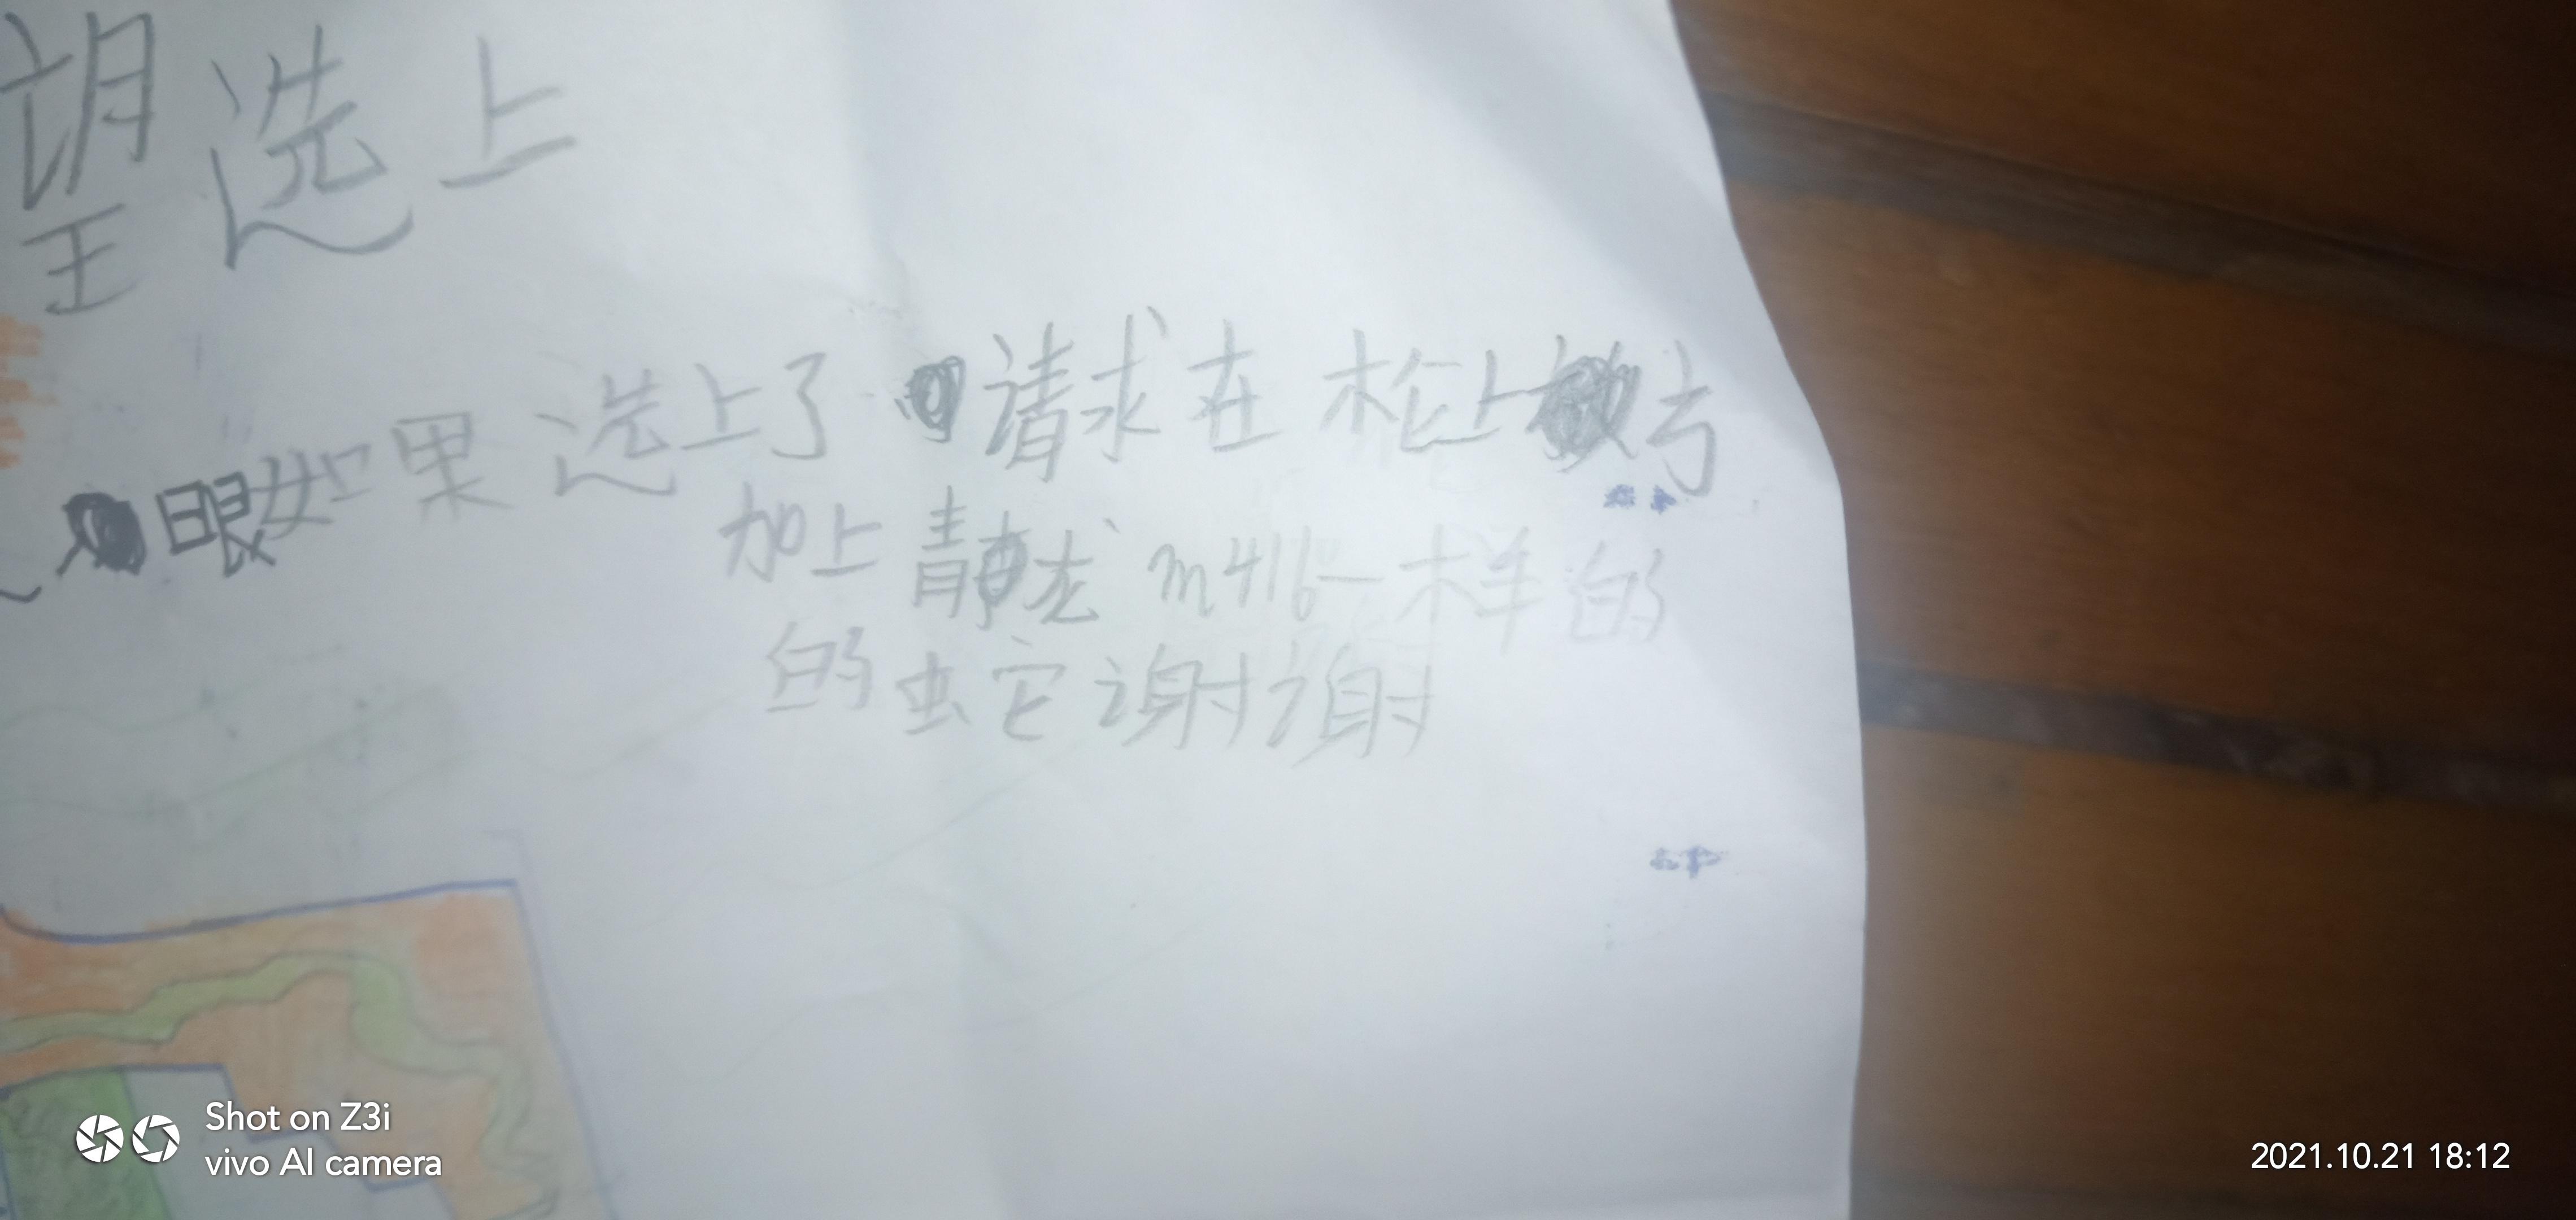 望选上
眼如果选上了请求在枪上
加上青龙m416一样的
的蛇谢谢
Shot on Z3i
vivo AI camera
2021.10.21 18:12